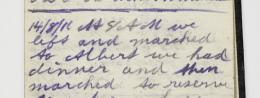 14/8/16 At 8 AM we
left and marched
to Albert we had
dinner and then
marched to reserve